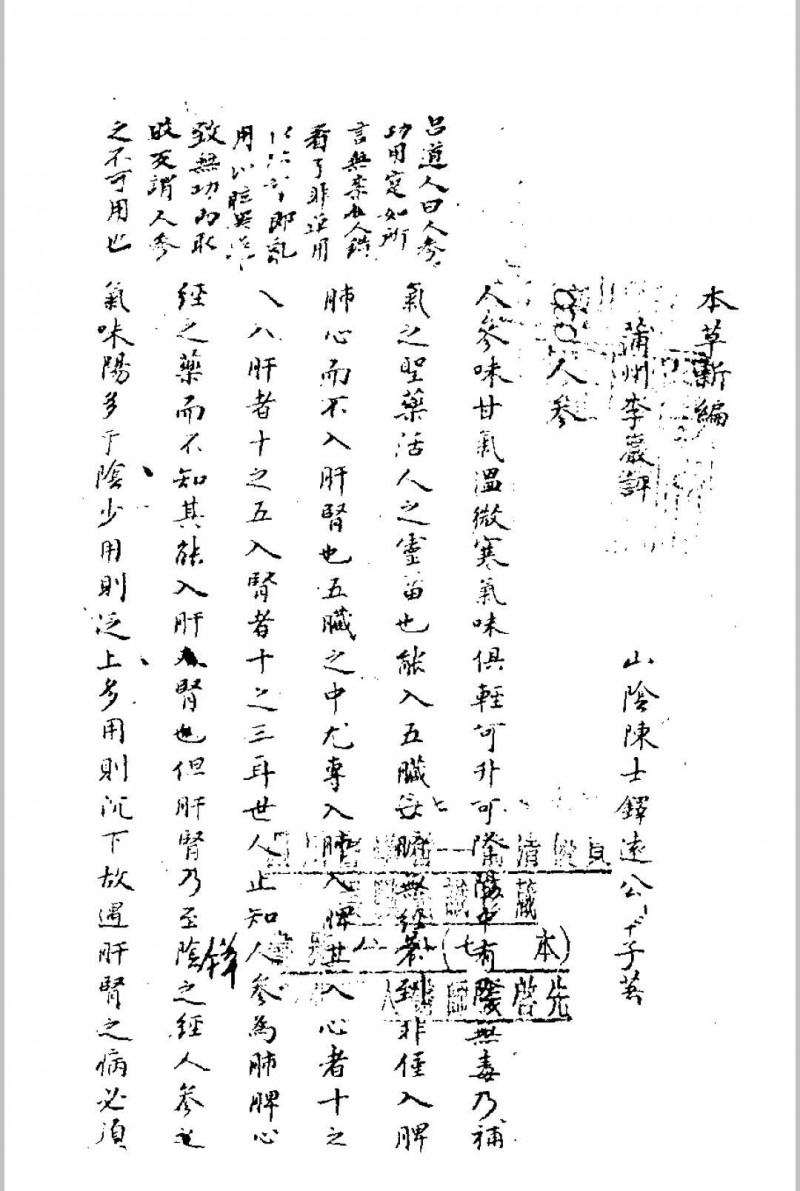 本草新編
蒲州李巖評
山陰陳士鐸遠公
人參
人參味甘氣溫微寒氣味俱輕可升可降陽中有陰無毒乃補
氣之聖藥活人之靈苗也能入五臟六腑無經不到非僅入脾
肺心而不入肝腎也五臟之中尤專入肺入脾其入心者十之
八入肝者十之五入腎者十之三耳世人止知人參為肺脾心
經之藥而不知其能入肝入腎也但肝腎乃至陰之經人參之
氣味陽多于陰少用則泛上多用則沉下故遇肝腎之病必須
呂道人曰人參
功用實如所
言無柰世人錯
看了非單用
即亂
用以
致無功而取
敗反謂人參
之不可用也